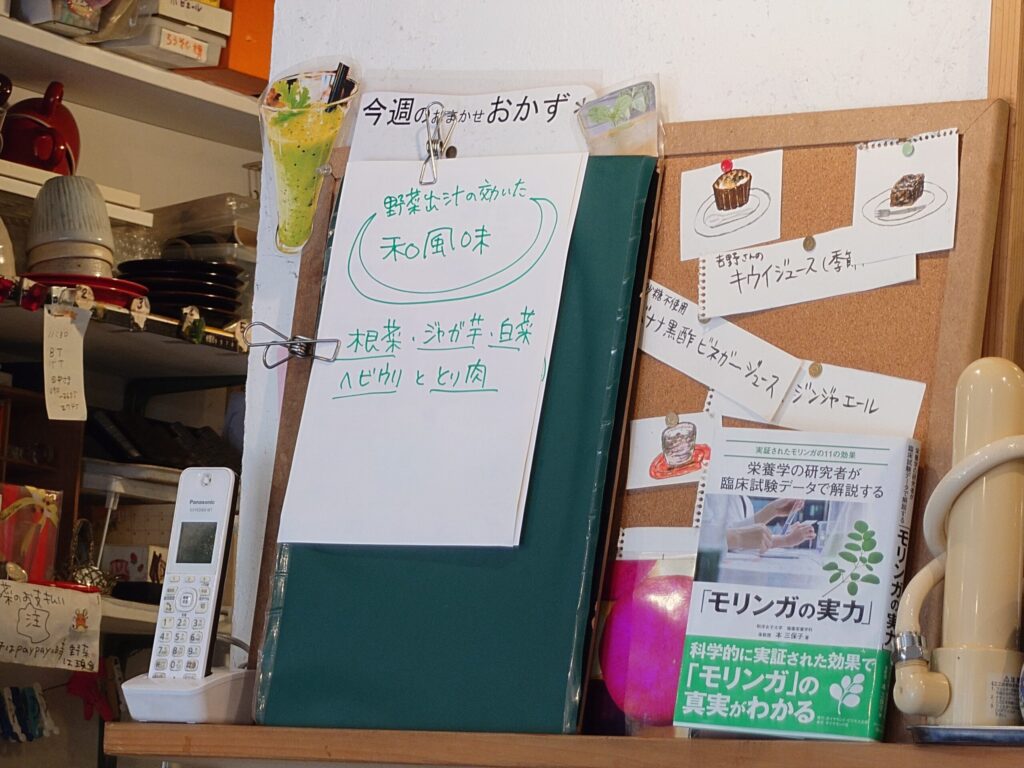 今週のおまかせおかず
野菜出汁の効いた
和風味
根菜・ジャガ芋・白菜
ヘビウリととり肉
吉野さんの
キウイジュース(季節
糖不使用
ナナ黒酢ビネガージュース
ジンジャエール
Panasonic
実証されたモリンガの11の効果
栄養学の研究者が
臨床試験データで解説する
「モリンガの実力」
本 三保子 著
科学的に実証された効果で
「モリンガ」の
真実がわかる
栄養学の研究者が
臨床試験データで解説する
「モリンガの実力」
11:30
菜のお支払い
注